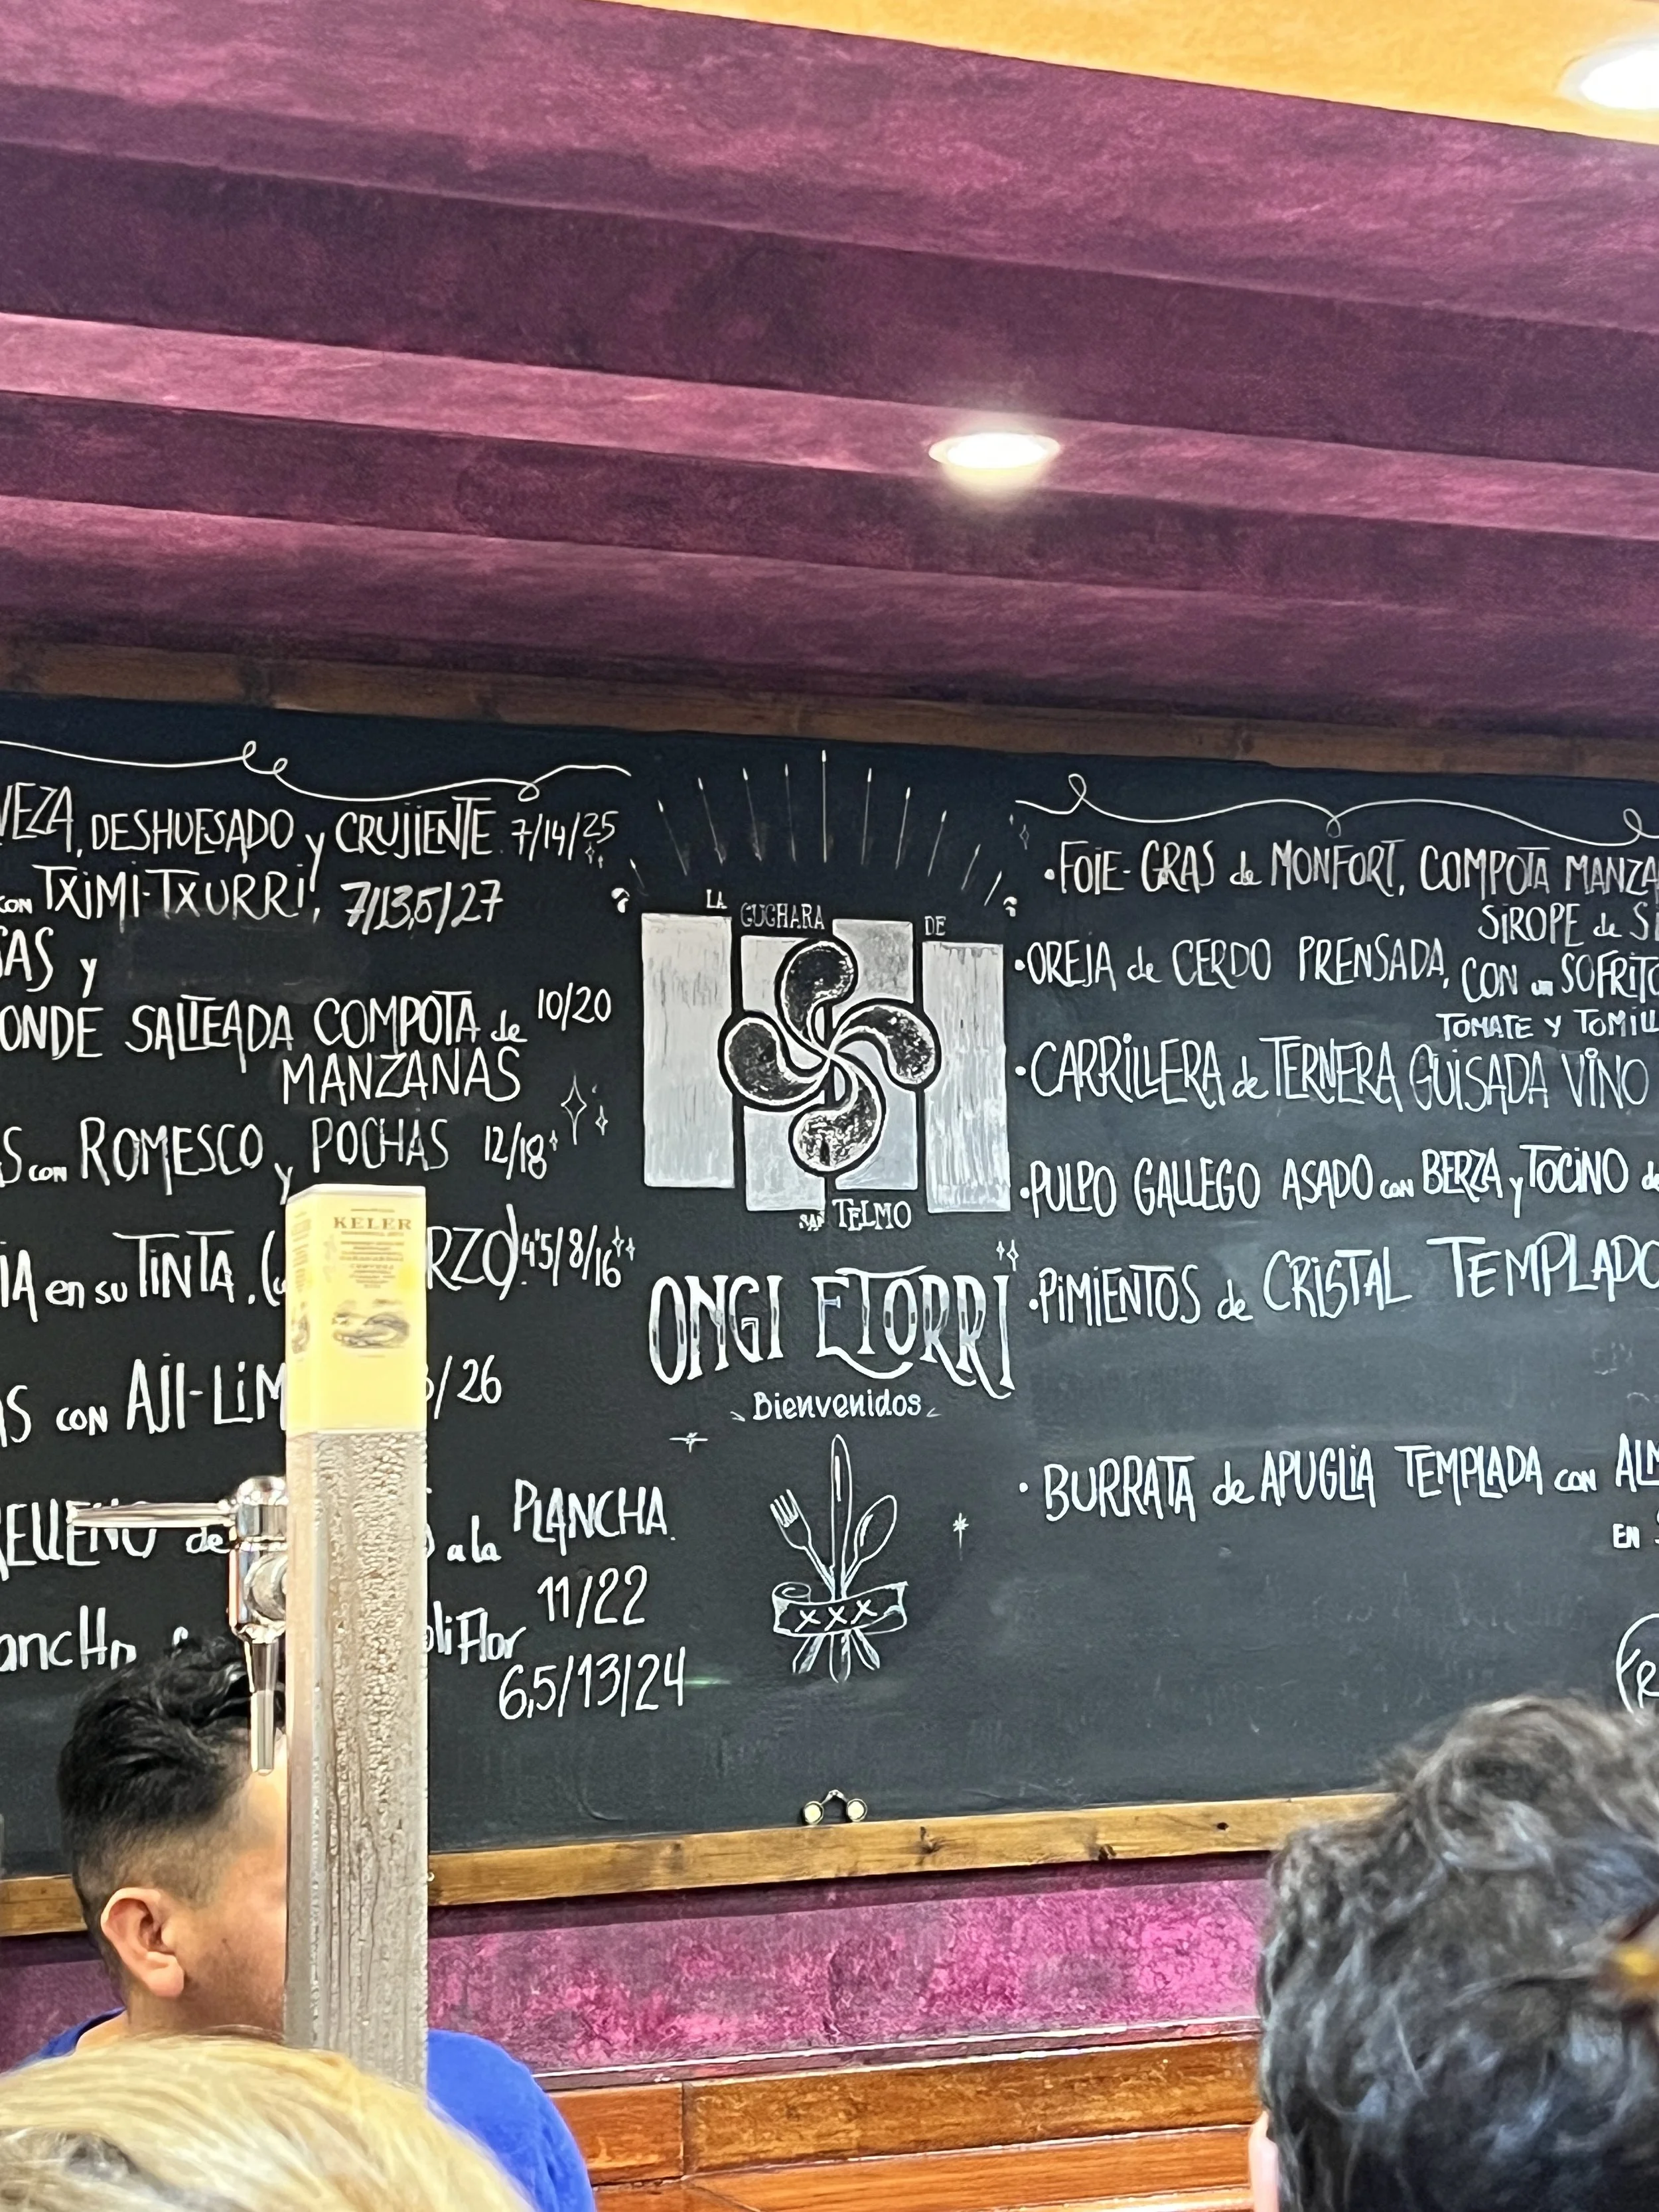 DESHUESADO y CRUJIENTE 7/14/25
CON TXIMI-TXURRI, 7/13,5/27
y
SALTEADA COMPOTA de 10/20
MANZANAS
CON ROMESCO y POCHAS 12/18
en su TINTA. 4'5/8/16
CON AJI- /26
de a la PLANCHA.
11/22
6,5/13/24
KELER
LA CUCHARA DE
SAN TELMO
ONGI ETORRI
Bienvenidos
XXX
• FOIE-GRAS de MONFORT, COMPOTA
SIROPE de
• OREJA de CERDO PRENSADA,
CON un
TOMATE Y
• CARRILLERA de TERNERA GUISADA VINO
• PULPO GALLEGO ASADO CON BERZA y TOCINO
• PIMIENTOS de CRISTAL
• BURRATA de APUGLIA TEMPLADA CON
EN